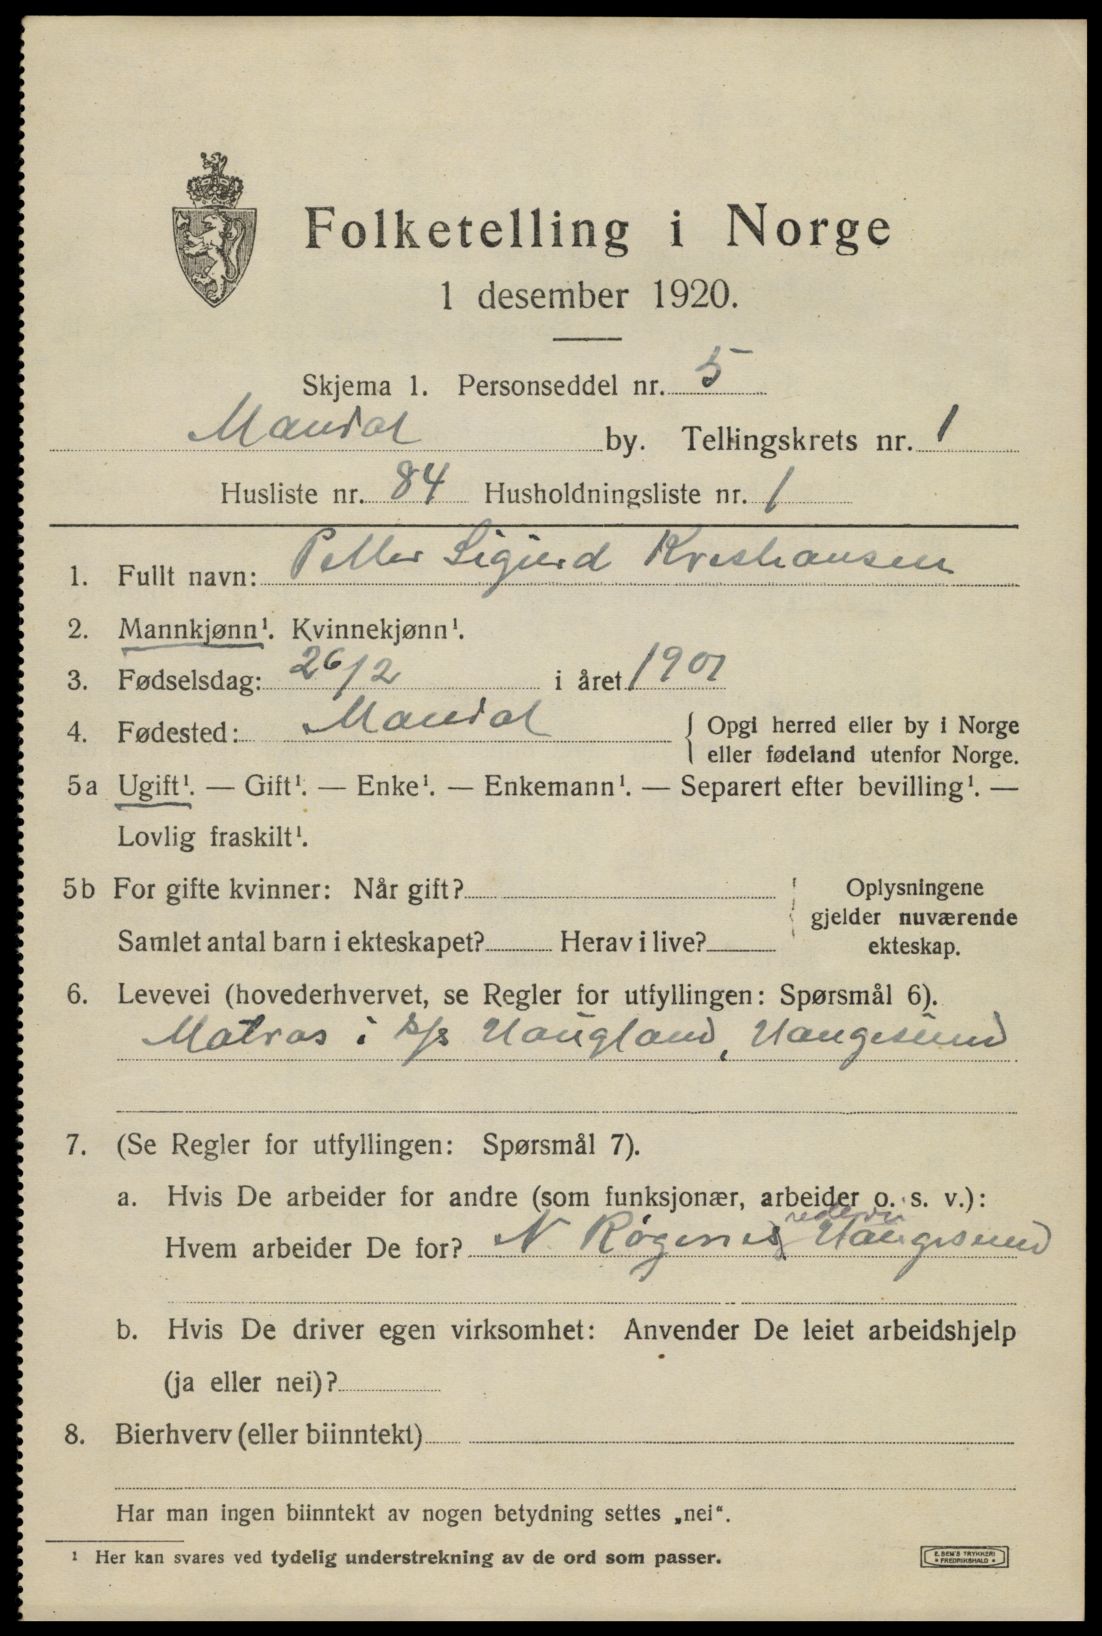 Folketelling i Norge
1 desember 1920.
Skjema 1. Personseddel nr. 5
Mandal by. Tellingskrets nr. 1
Husliste nr. 84 Husholdningsliste nr. 1
1. Fullt navn: Petter Sigurd Kristiansen
2. Mannkjønn¹. Kvinnekjønn¹.
3. Fødselsdag: 26/2 i året 1901
4. Fødested: Mandal { Opgi herred eller by i Norge
eller fødeland utenfor Norge.
5a Ugift¹. — Gift¹. — Enke¹. — Enkemann¹. — Separert efter bevilling¹. —
Lovlig fraskilt¹.
5b For gifte kvinner: Når gift?
Samlet antal barn i ekteskapet? Herav i live?
Oplysningene
gjelder nuværende
ekteskap.
6. Levevei (hovederhvervet, se Regler for utfyllingen: Spørsmål 6).
Matros i D/S Haugland, Haugesund
7. (Se Regler for utfyllingen: Spørsmål 7).
a. Hvis De arbeider for andre (som funksjonær, arbeider o. s. v.):
rederi
Hvem arbeider De for? N Røgenes Haugesund
b. Hvis De driver egen virksomhet: Anvender De leiet arbeidshjelp
(ja eller nei)?
8. Bierhverv (eller biinntekt)
Har man ingen biinntekt av nogen betydning settes „nei“.
¹ Her kan svares ved tydelig understrekning av de ord som passer.
E. SEM'S TRYKKERI
* FREDRIKSHALD *